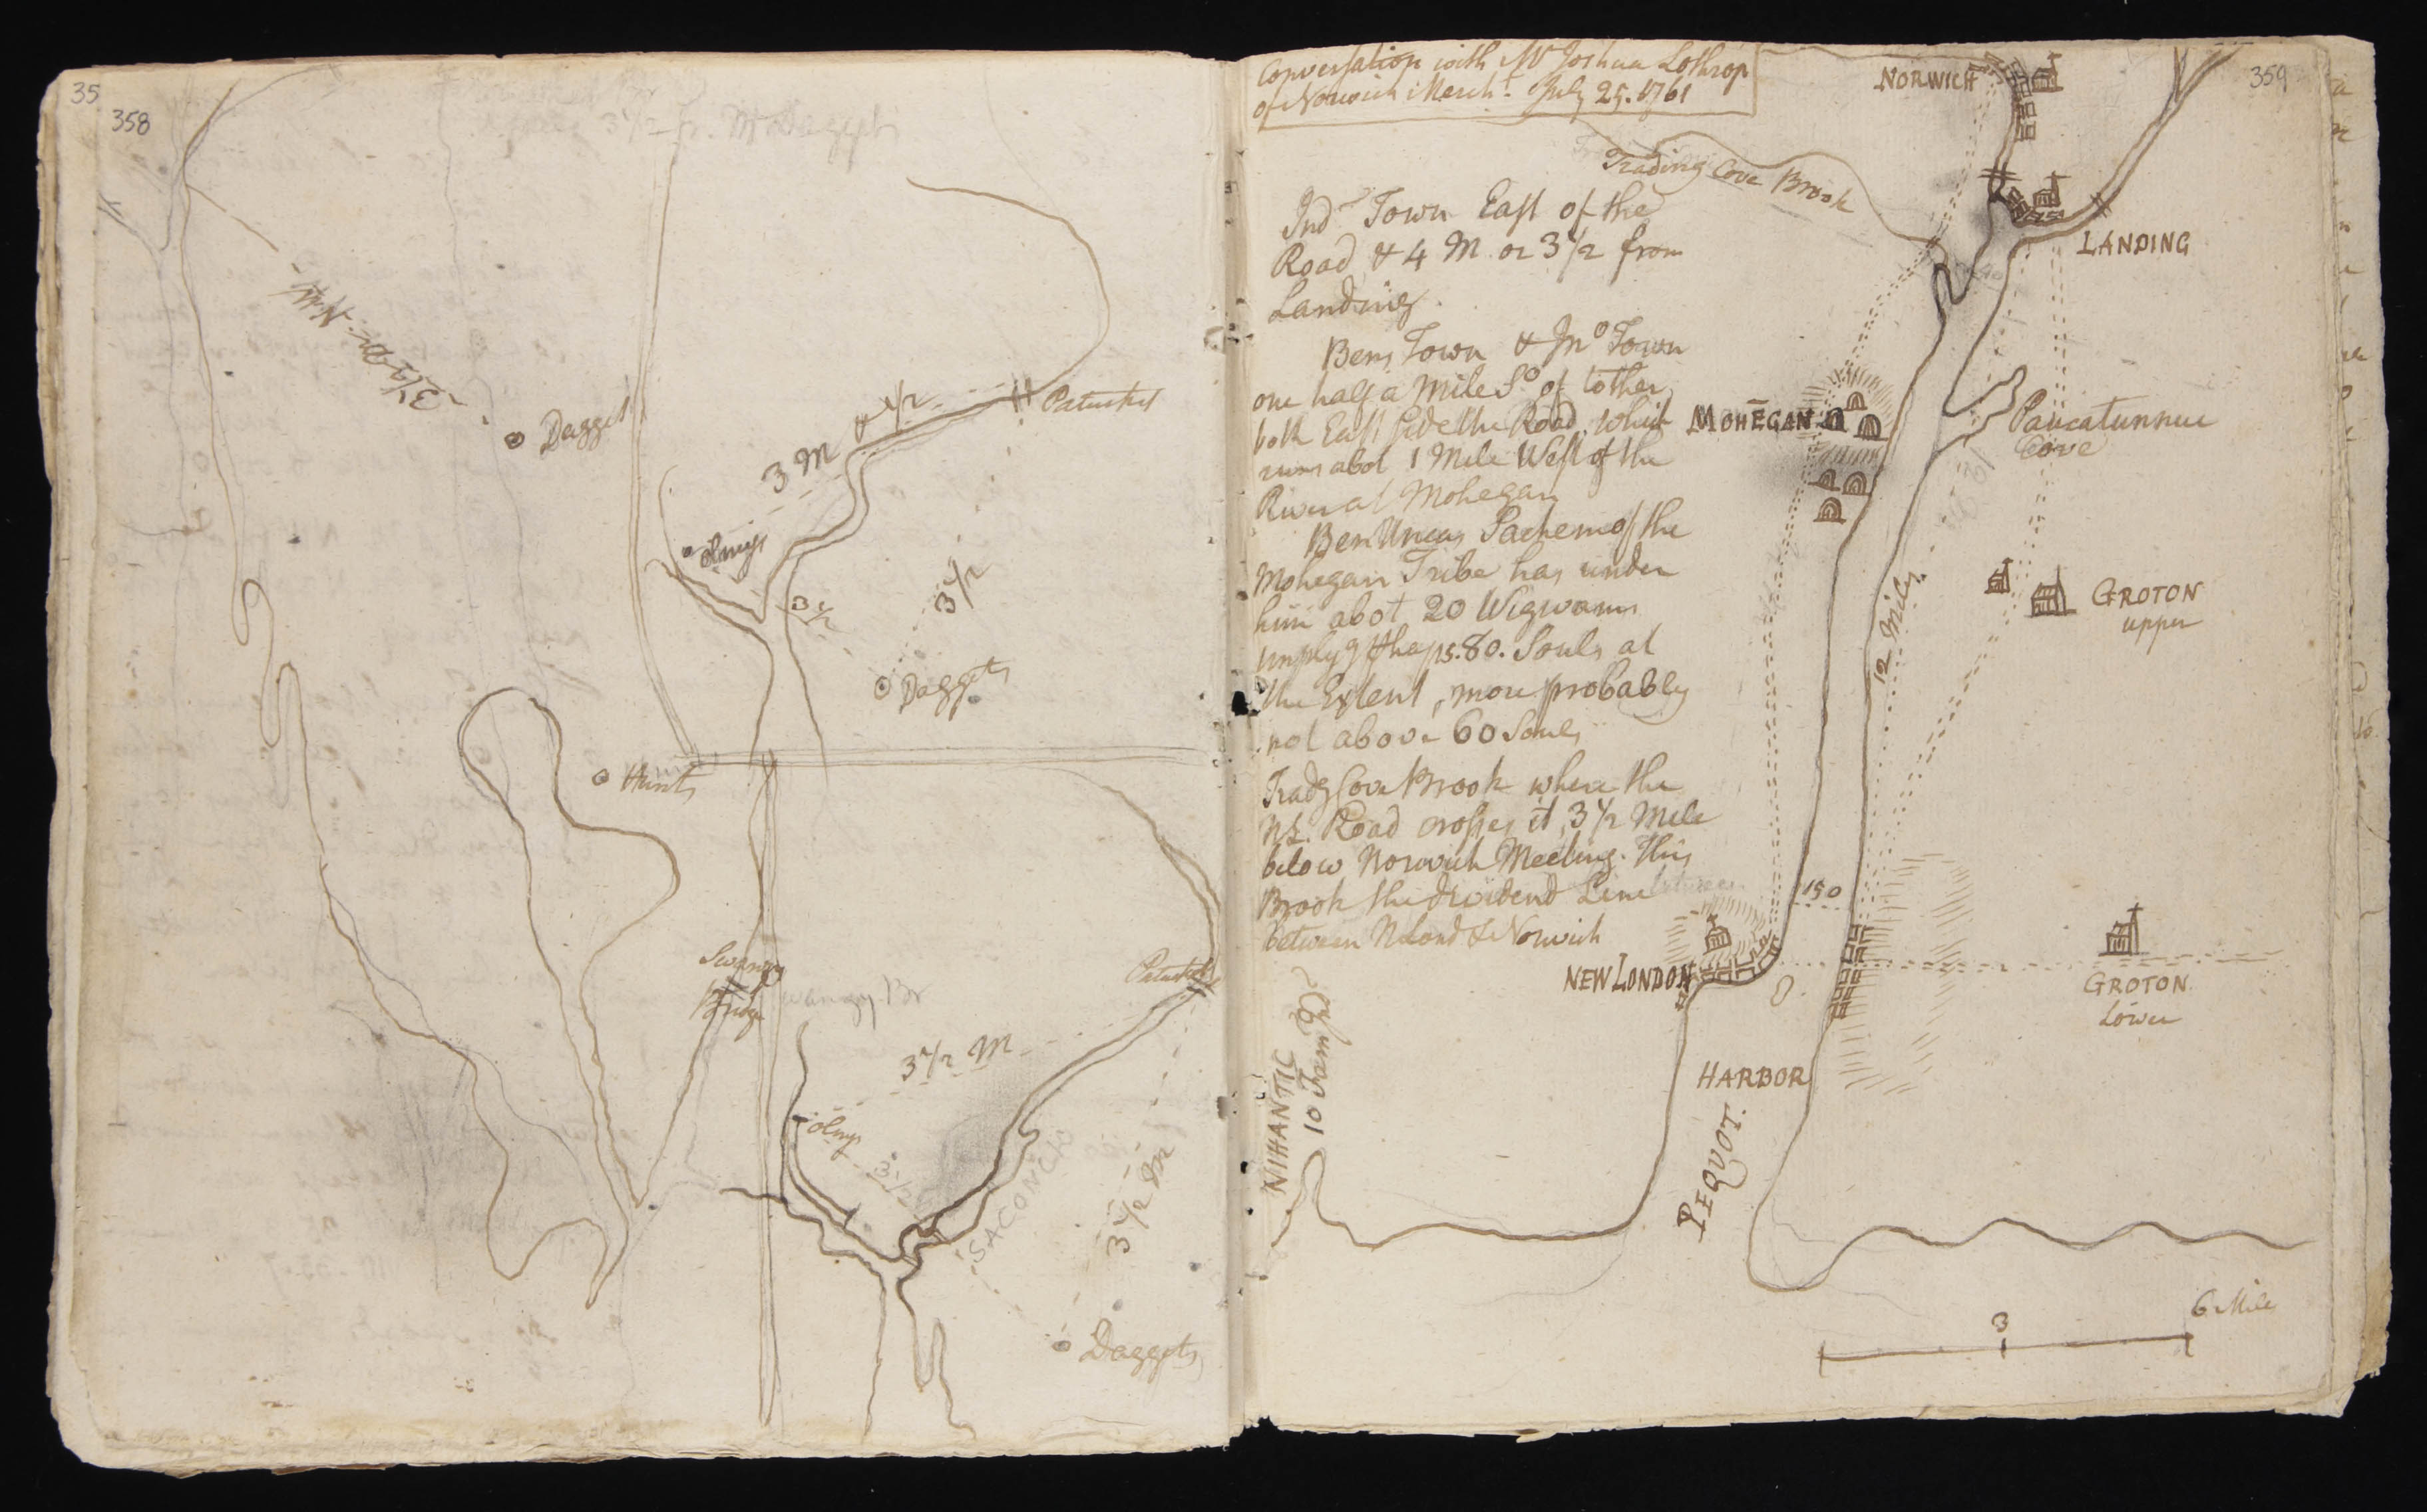 35
358
3 1/2 fr. Mr Daggets
3 1/2
Dagget
Patucket
3 M & 1/2
olneys
3 1/2
3 1/2
Daggets
Hunts
Swanzy
Bridge
wanzy Br
Patucket
3 1/2 M
olnys
3 1/2
SACONCK
3 1/2 M
Daggets
359
Conversation with Mr Joshua Lothrop
of Norwich Mercht. July 25. 1761
NORWICH
Trading Cove Brook
LANDING
Indn Town East of the
Road & 4 M or 3 1/2 from
Landing.
Bens Town & Jno Town
one half a mile So of tother
both East side the Road, which
runs abot 1 Mile West of the
River at Mohegan
Ben Uncas Sachem of the
Mohegan Tribe has under
him abot 20 Wigwams
implyg phaps. 80. Souls at
the Extent, more probably
not above 60 Souls
Tradg Cove Brook where the
NL. Road crosses it, 3 1/2 Mile
below Norwich Meeting. This
Brook the dividend Line
between N Lond & Norwich
MOHEGAN
Paucatunnuc
Cove
GROTON
upper
12 Miles
150
NEW LONDON
GROTON
Lower
NIHANTIC
10 Fam Ind
HARBOR
PEQUOT
3
6 Mile